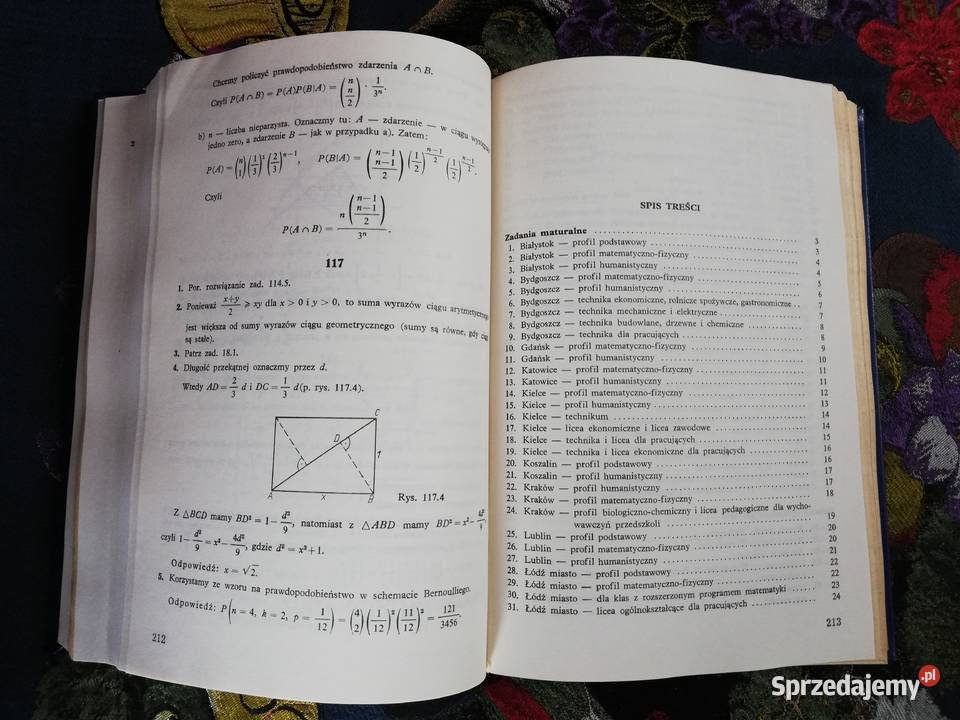 Chcemy policzyć prawdopodobieństwo zdarzenia A ∩ B.
Czyli P(A ∩ B) = P(A)P(B|A) = (n n/2) · 1/3ⁿ.
b) n — liczba nieparzysta. Oznaczmy tu: A — zdarzenie — w ciągu
jedno zero, a zdarzenie B — jak w przypadku a). Zatem:
P(A) = (n 1)(1/3)¹(2/3)ⁿ⁻¹, P(B|A) = (n−1 (n−1)/2)(1/2)^((n−1)/2)(1/2)^((n−1)/2).
Czyli
P(A ∩ B) = n(n−1 (n−1)/2)/3ⁿ.
117
1. Por. rozwiązanie zad. 114.5.
2. Ponieważ (x+y)/2 ⩾ xy dla x > 0 i y > 0, to suma wyrazów ciągu
jest większa od sumy wyrazów ciągu geometrycznego (sumy są równe, gdy
są stałe).
3. Patrz zad. 18.1.
4. Długość przekątnej oznaczmy przez d.
Wtedy AD = 2/3 d i DC = 1/3 d (p. rys. 117.4).
C
D
1
A
x
B
Rys. 117.4
Z △BCD mamy BD² = 1 − d²/9, natomiast z △ABD mamy BD² = x² − 4d²/9,
czyli 1 − d²/9 = x² − 4d²/9, gdzie d² = x² + 1.
Odpowiedź: x = √2.
5. Korzystamy ze wzoru na prawdopodobieństwo w schemacie Bernoulliego.
Odpowiedź: P(n = 4, k = 2, p = 1/12) = (4 2)(1/12)²(11/12)² = 121/3456.
212
2
SPIS TREŚCI
Zadania maturalne 3
1. Białystok — profil podstawowy 3
2. Białystok — profil matematyczno-fizyczny 4
3. Białystok — profil humanistyczny 4
4. Bydgoszcz — profil matematyczno-fizyczny 5
5. Bydgoszcz — profil humanistyczny 6
6. Bydgoszcz — technika ekonomiczne, rolnicze spożywcze, gastronomiczne 7
7. Bydgoszcz — technika mechaniczne i elektryczne 7
8. Bydgoszcz — technika budowlane, drzewne i chemiczne 8
9. Bydgoszcz — technika dla pracujących 8
10. Gdańsk — profil matematyczno-fizyczny 9
11. Gdańsk — profil humanistyczny 10
12. Katowice — profil matematyczno-fizyczny 11
13. Katowice — profil humanistyczny 11
14. Kielce — profil matematyczno-fizyczny 12
15. Kielce — profil humanistyczny 13
16. Kielce — technikum 14
17. Kielce — licea ekonomiczne i licea zawodowe 14
18. Kielce — technika i licea dla pracujących 15
19. Kielce — technika i licea ekonomiczne dla pracujących 16
20. Koszalin — profil podstawowy 16
21. Koszalin — profil humanistyczny 17
22. Kraków — profil humanistyczny 17
23. Kraków — profil matematyczno-fizyczny 18
24. Kraków — profil biologiczno-chemiczny i licea pedagogiczne dla wycho-
wawczyń przedszkoli 19
25. Lublin — profil podstawowy 20
26. Lublin — profil matematyczno-fizyczny 20
27. Lublin — profil humanistyczny 21
28. Łódź miasto — profil podstawowy 22
29. Łódź miasto — profil matematyczno-fizyczny 22
30. Łódź miasto — dla klas z rozszerzonym programem matematyki 23
31. Łódź miasto — licea ogólnokształcące dla pracujących 24
213
Sprzedajemy.pl